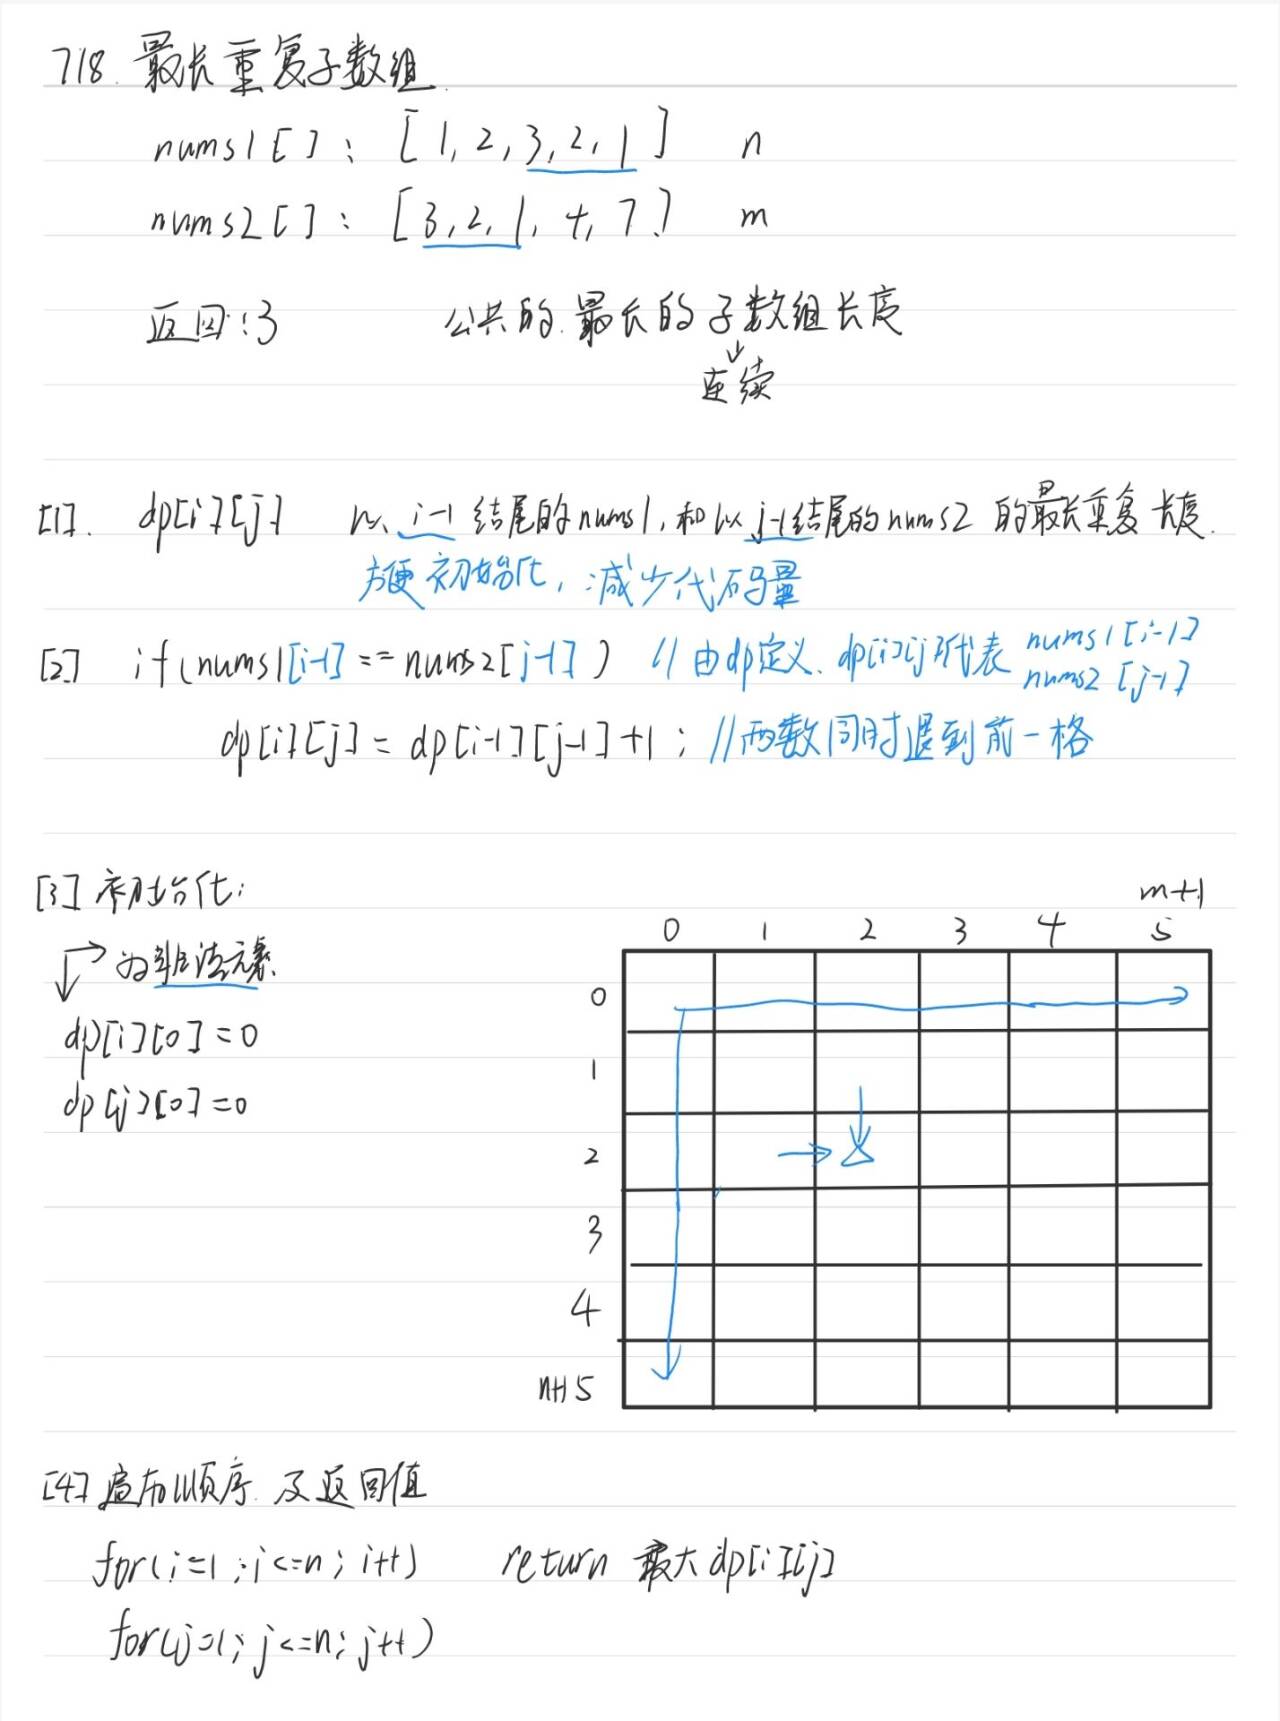 718. 最长重复子数组.
nums1[]: [1, 2, 3, 2, 1] n
nums2[]: [3, 2, 1, 4, 7] m
返回:3 公共的.最长的子数组长度
↓
连续
[1]. dp[i][j] 以 i-1 结尾的nums1,和以 j-1结尾的nums2 的最长重复长度.
方便初始化,减少代码量
[2] if(nums1[i-1] == nums2[j-1]) // 由dp定义、dp[i][j]代表 nums1[i-1]
nums2 [j-1]
dp[i][j] = dp[i-1][j-1]+1; //两数同时退到前一格
[3] 初始化:
m+1
0 1 2 3 4 5
为非法元素.
0
dp[i][0]=0
1
dp[j][0]=0
2
3
4
n+1 5
[4] 遍历顺序.及返回值
for(i=1;i<=n;i++) return 最大dp[i][j]
for(j=1;j<=n;j++)